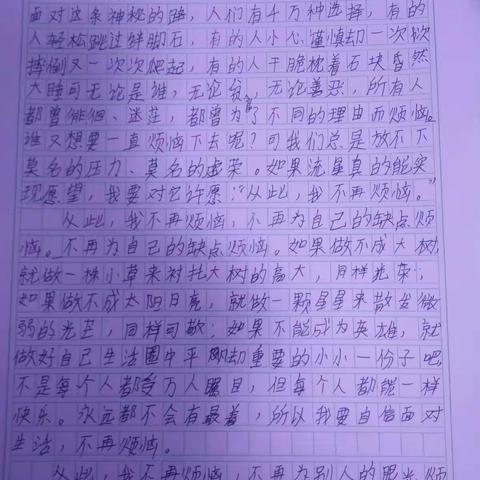 面对这条神秘的路，人们有千万种选择，有的
人轻松跳过绊脚石，有的人小心谨慎却一次次
摔倒又一次次爬起，有的人干脆枕着石块昏然
大睡可无论是谁，无论贫富，无论善恶，所有人
都曾徘徊、迷茫，都曾为了不同的理由而烦恼。
谁又想要一直烦恼下去呢？可我们总是放不下
莫名的压力、莫名的虚荣。如果流星真的能实
现愿望，我要对它许愿：“从此，我不再烦恼。”
从此，我不再烦恼，不再为自己的缺点烦
恼。不再为自己的缺点烦恼。如果做不成大树
就做一株小草来衬托大树的高大，同样光荣；
如果做不成太阳月亮，就做一颗星星来散发微
弱的光芒，同样可敬；如果不能成为英雄，就
做好自己生活圈中平凡却重要的小小一份子吧
不是每个人都受万人瞩目，但每个人都能一样
快乐。永远都不会有最着，所以我要自信面对
生活，不再烦恼。
从此，我不再烦恼，不再为别人的眼光烦